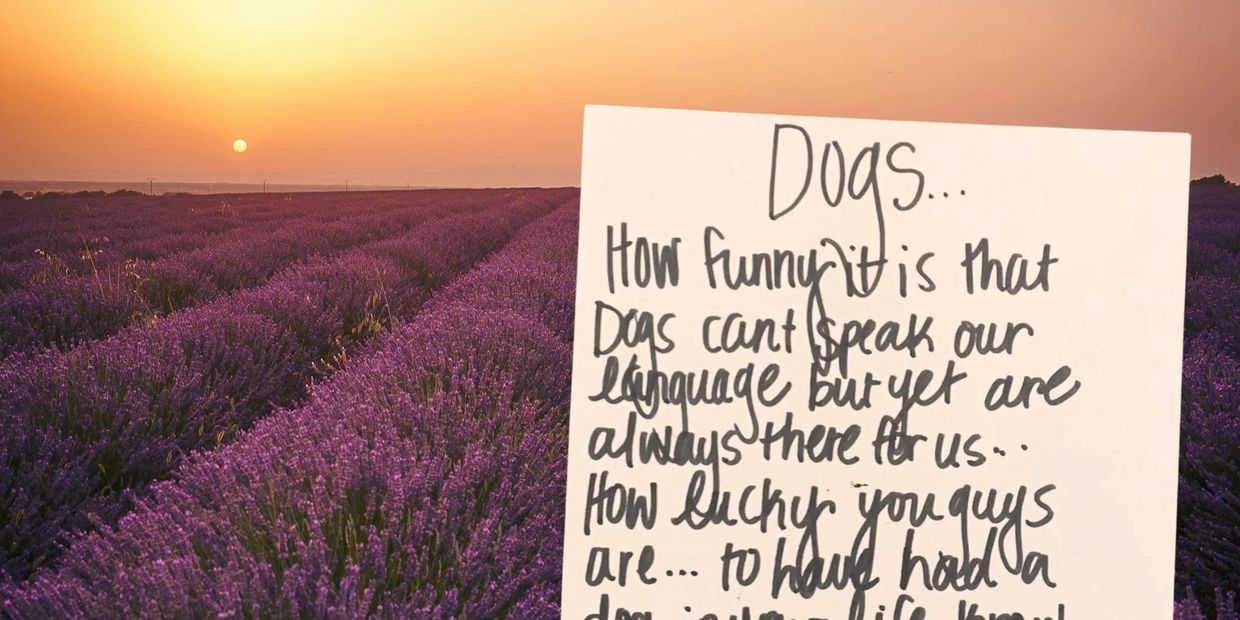 Dogs...
How funny it is that
Dogs cant speak our
language but yet are
always there for us...
How lucky you guys
are... to have had a
dog in your life